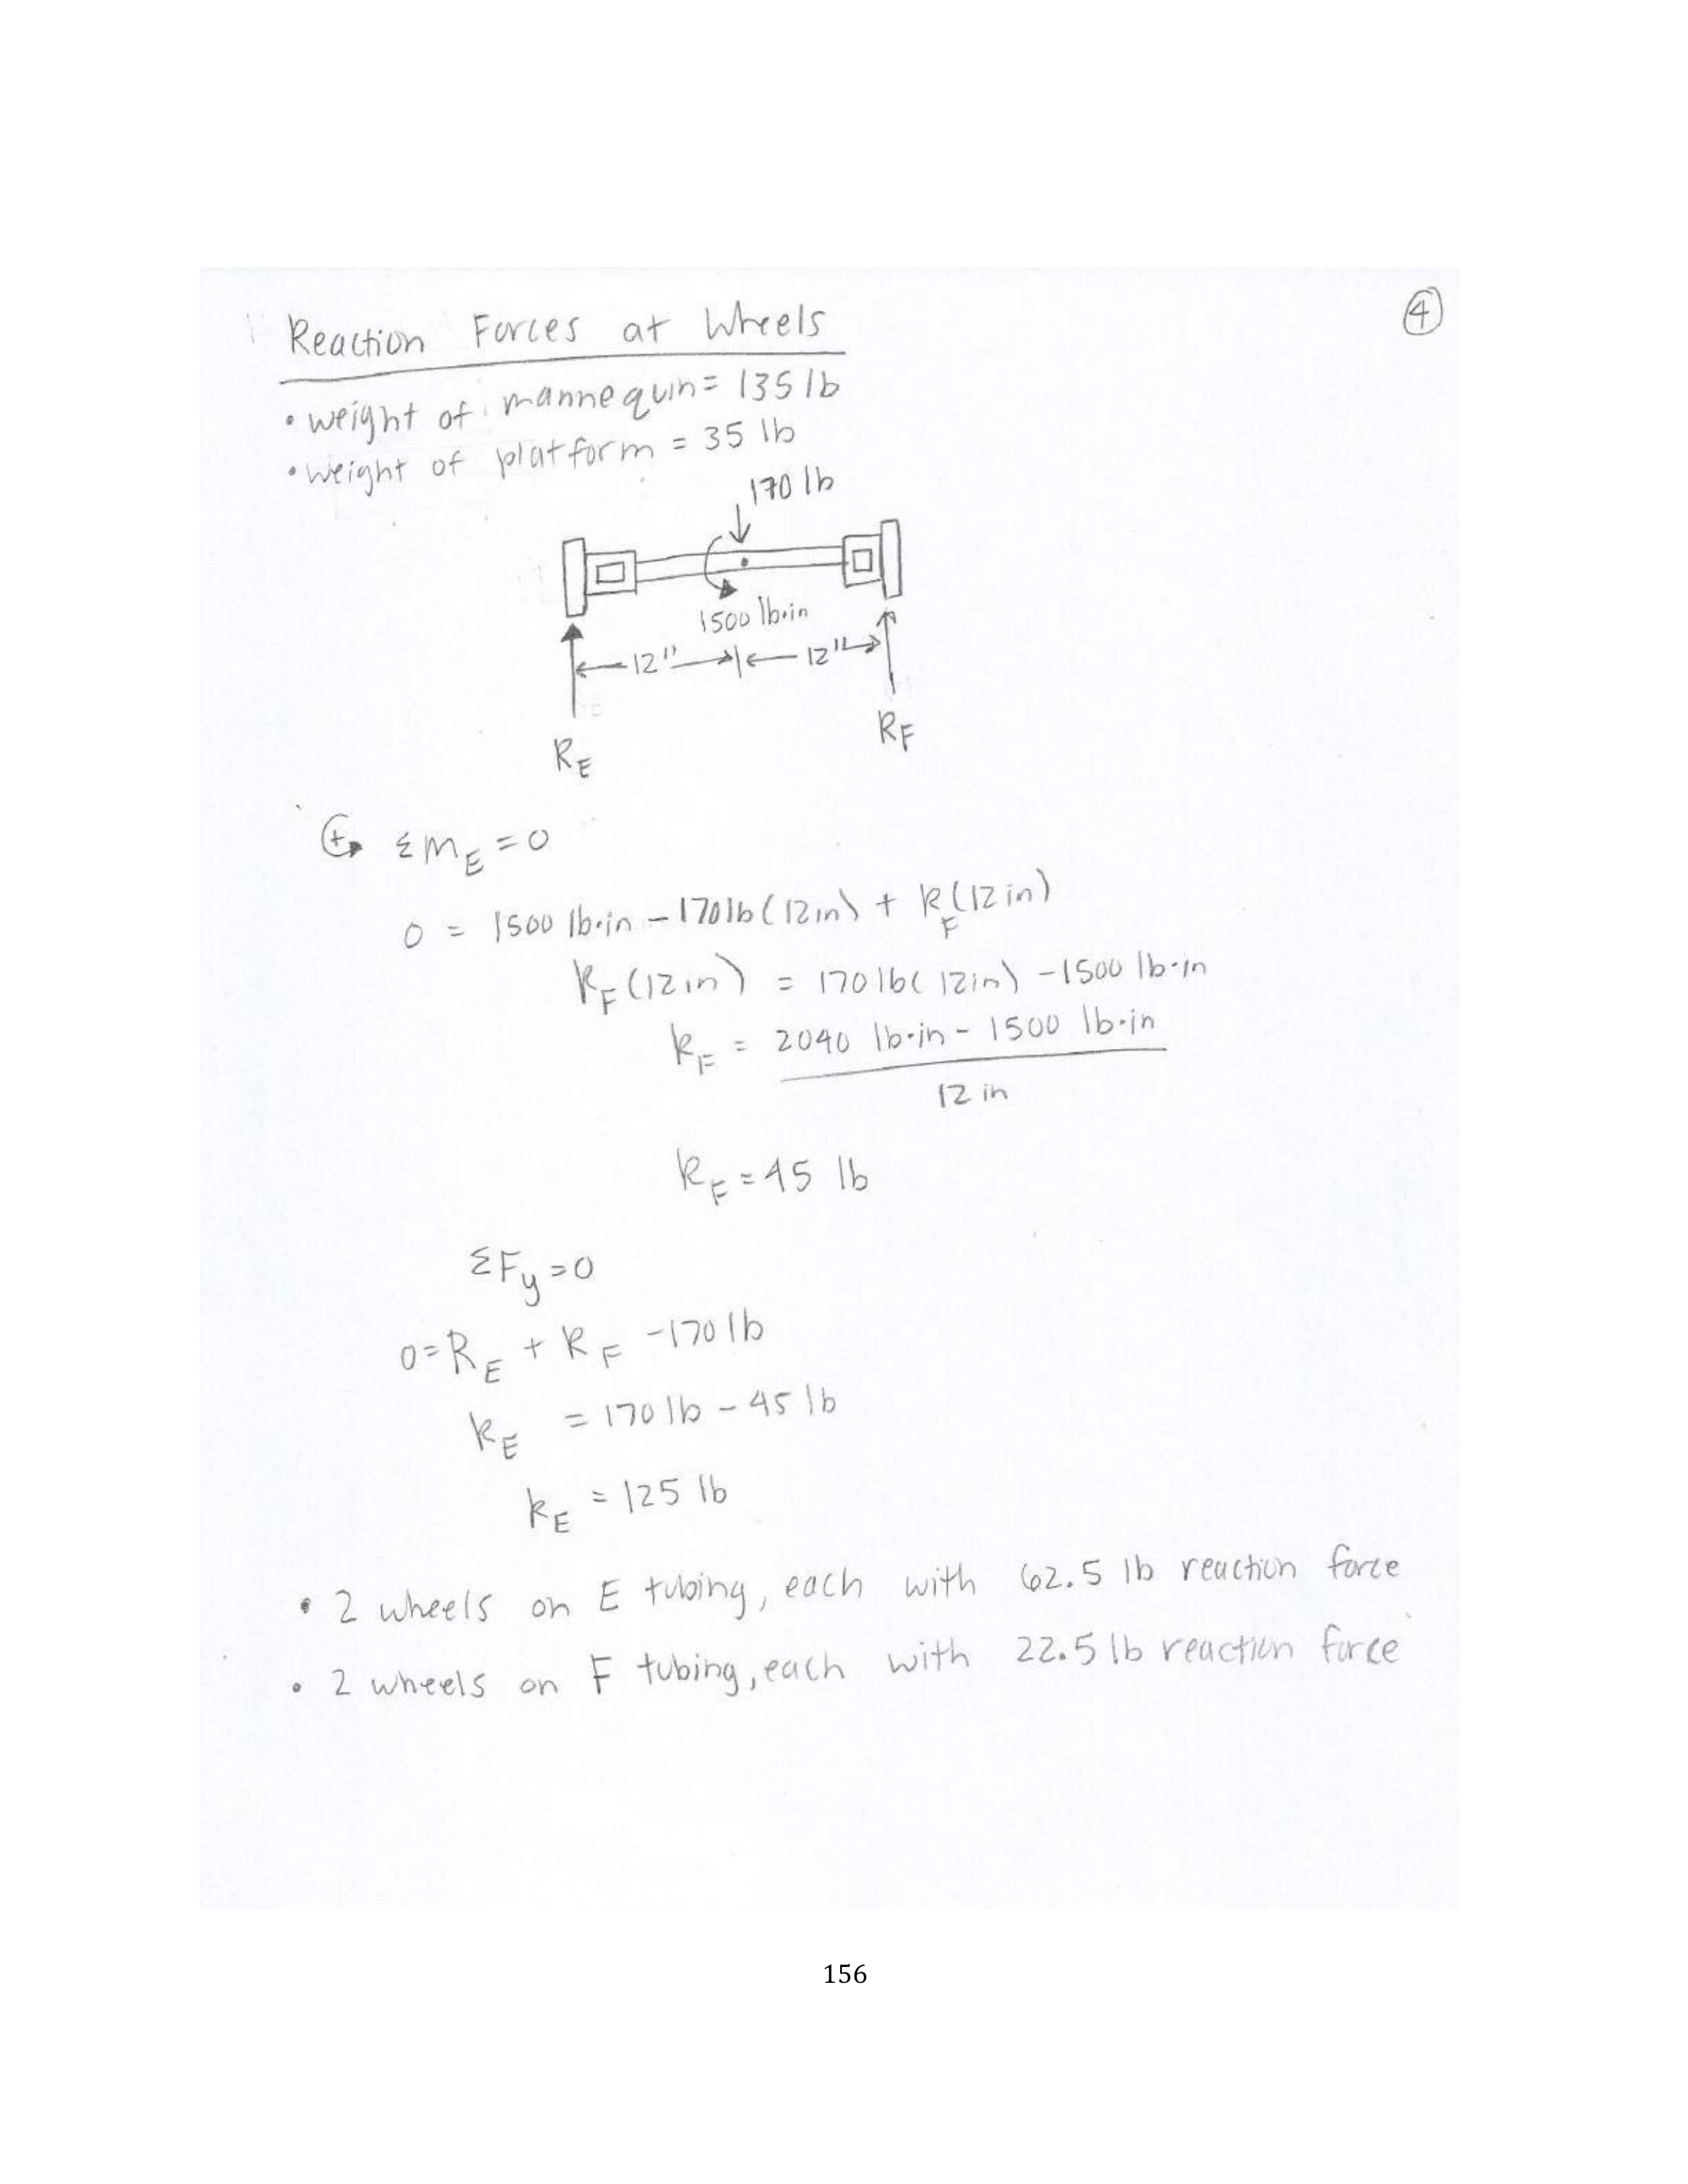 Reaction Forces at Wheels
④
• weight of mannequin = 135 lb
• weight of platform = 35 lb
170 lb
1500 lb·in
12" 12"
R_E R_F
+ ΣM_E = 0
0 = 1500 lb·in - 170 lb (12 in) + R_F (12 in)
R_F (12 in) = 170 lb (12 in) - 1500 lb·in
R_F = 2040 lb·in - 1500 lb·in
12 in
R_F = 45 lb
ΣF_y = 0
0 = R_E + R_F - 170 lb
R_E = 170 lb - 45 lb
R_E = 125 lb
• 2 wheels on E tubing, each with 62.5 lb reaction force
• 2 wheels on F tubing, each with 22.5 lb reaction force
156